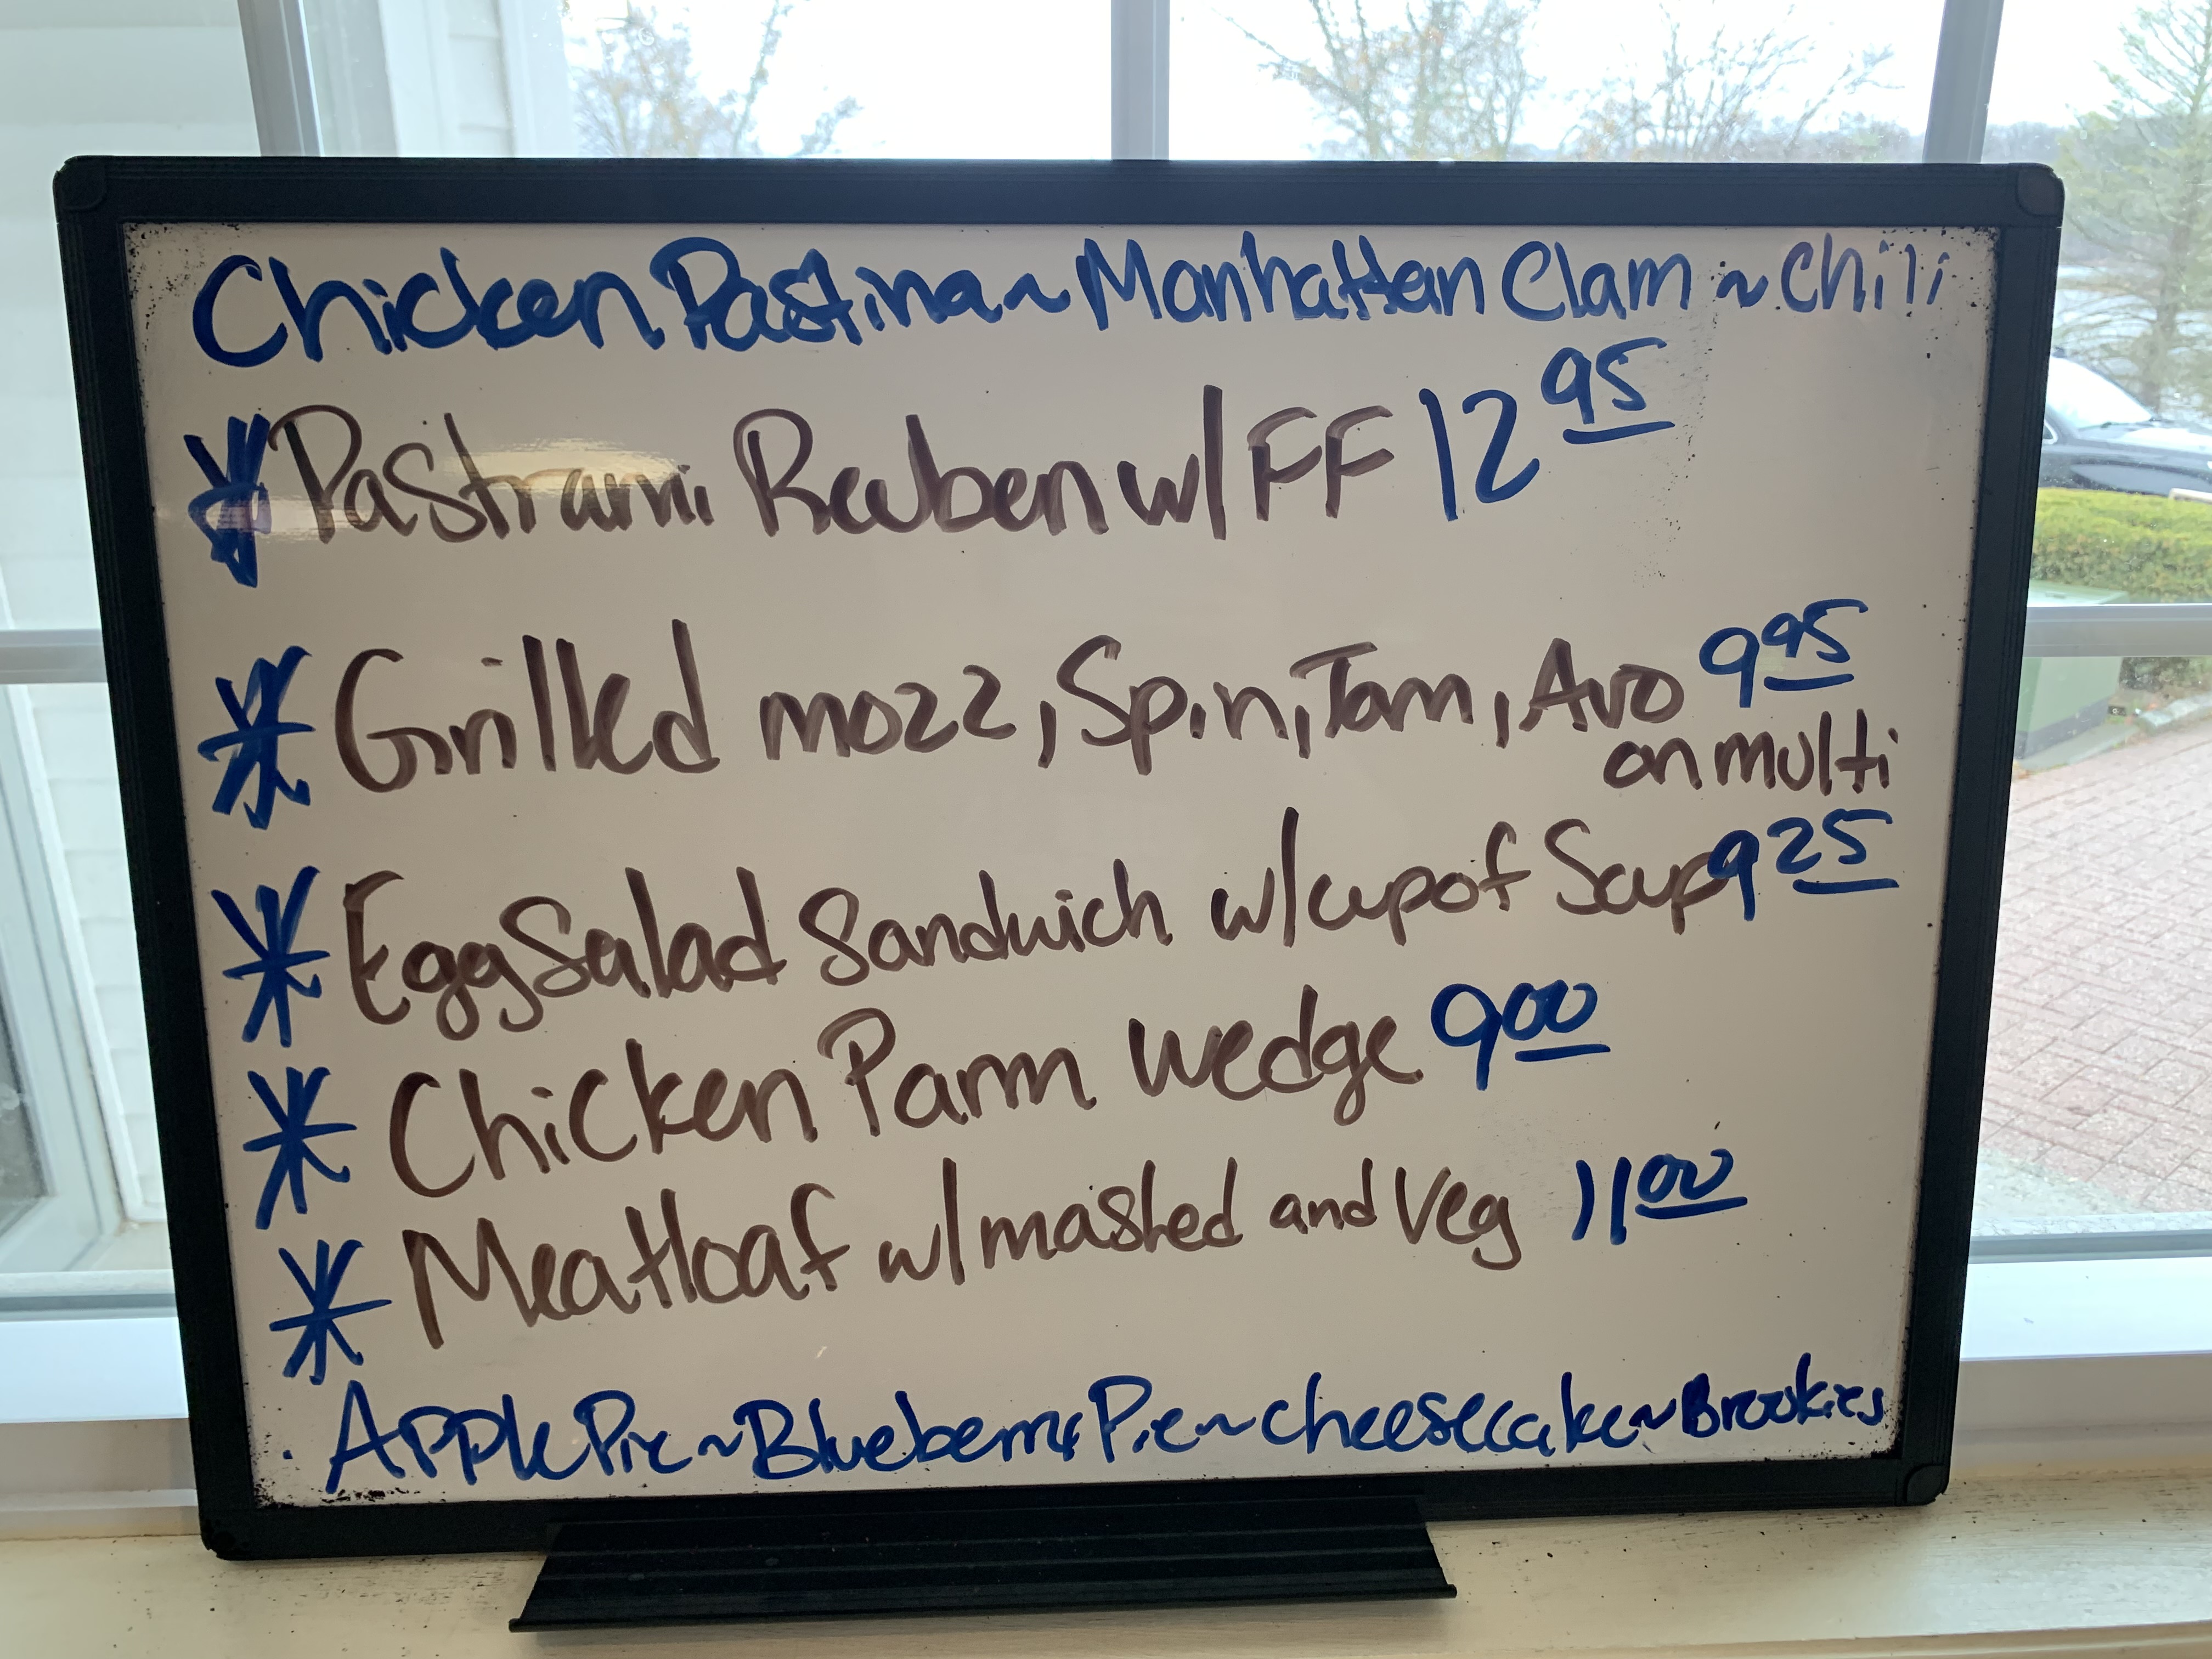 Chicken Pastina ~ Manhattan Clam ~ Chili
* Pastrami Reuben w/ FF 12 95
* Grilled mozz, Spin, Tom, Avo 9 95
on multi
* Egg Salad Sandwich w/ cup of Soup 9 25
* Chicken Parm Wedge 9 00
* Meatloaf w/ mashed and Veg 11 00
Apple Pie ~ Blueberry Pie ~ Cheesecake ~ Brookies